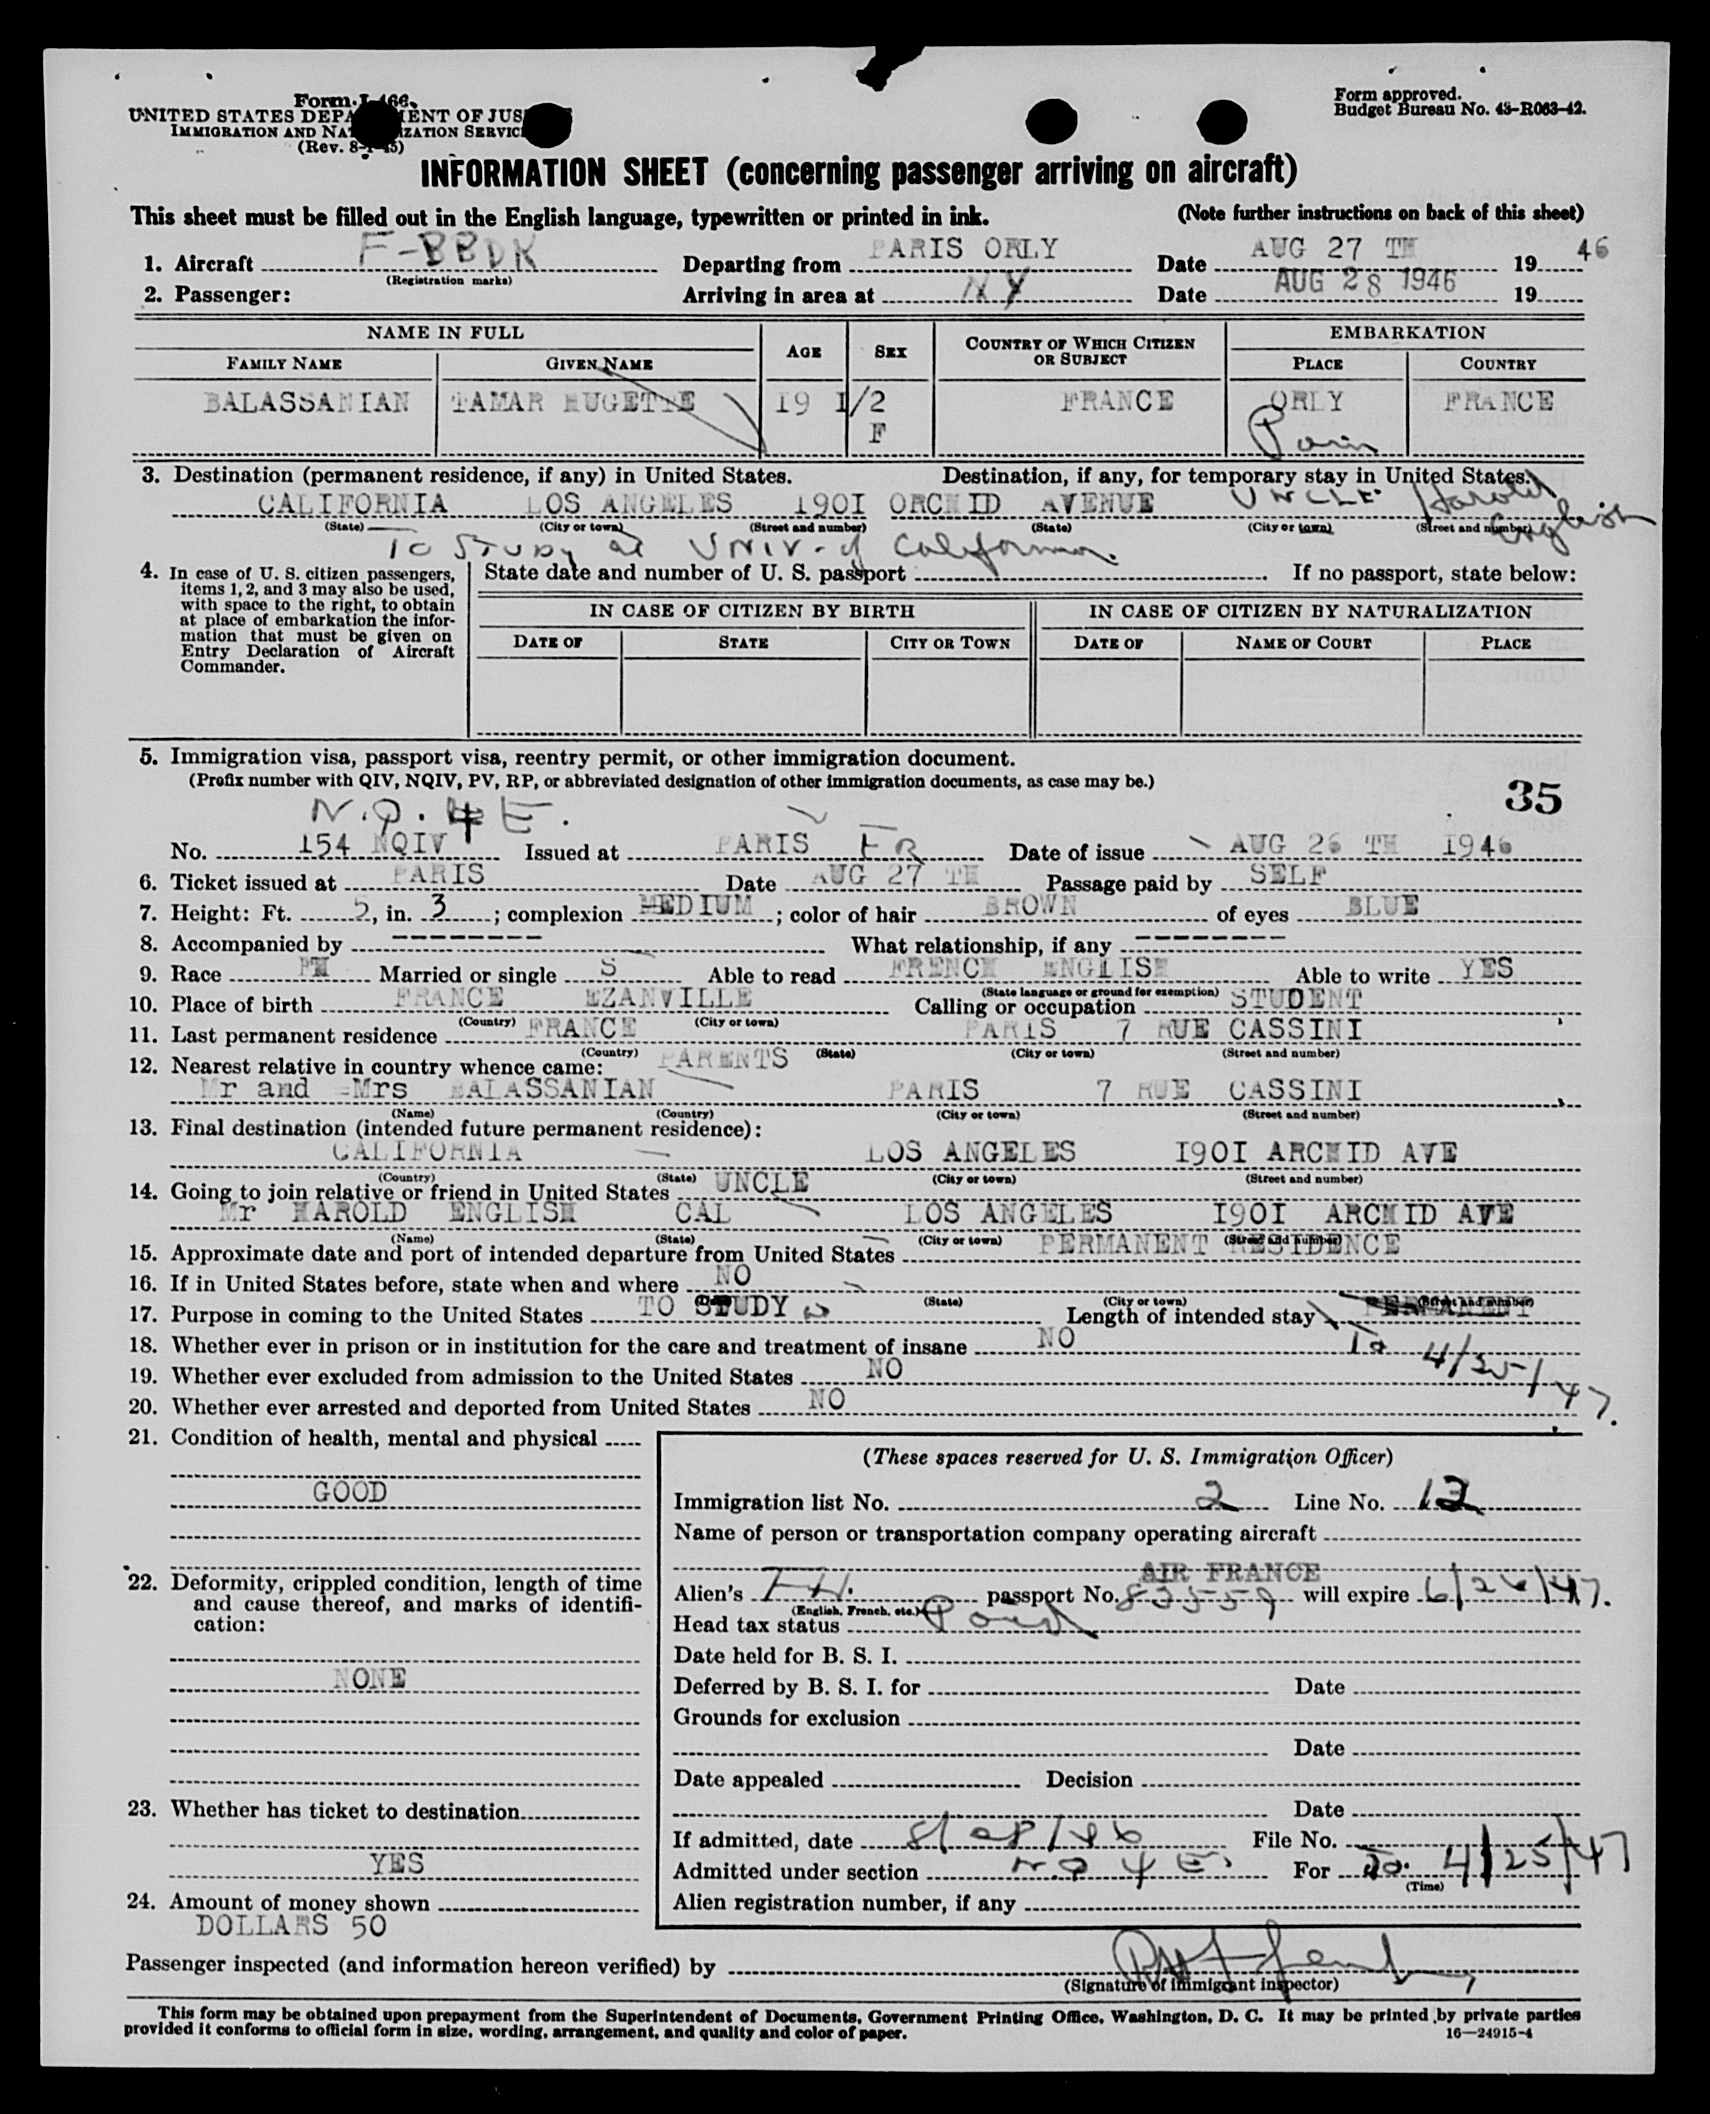 Form I-466
UNITED STATES DEPARTMENT OF JUSTICE
IMMIGRATION AND NATURALIZATION SERVICE
(Rev. 8-1-45)
Form approved.
Budget Bureau No. 43-R063-42.
INFORMATION SHEET (concerning passenger arriving on aircraft)
This sheet must be filled out in the English language, typewritten or printed in ink. (Note further instructions on back of this sheet)
1. Aircraft F-BBDK Departing from PARIS ORLY Date AUG 27 TH 19 46
(Registration marks)
2. Passenger: Arriving in area at NY Date AUG 28 1946 19
NAME IN FULL AGE SEX COUNTRY OF WHICH CITIZEN OR SUBJECT EMBARKATION
FAMILY NAME GIVEN NAME PLACE COUNTRY
BALASSANIAN TAMAR HUGETTE 19 1/2 F FRANCE ORLY FRANCE
Paris
3. Destination (permanent residence, if any) in United States. Destination, if any, for temporary stay in United States.
CALIFORNIA LOS ANGELES I90I ORCHID AVENUE UNCLE Harold English
(State) (City or town) (Street and number) (State) (City or town) (Street and number)
To STUDY at UNIV. of California.
4. In case of U. S. citizen passengers, items 1, 2, and 3 may also be used, with space to the right, to obtain at place of embarkation the information that must be given on Entry Declaration of Aircraft Commander.
State date and number of U. S. passport If no passport, state below:
IN CASE OF CITIZEN BY BIRTH IN CASE OF CITIZEN BY NATURALIZATION
DATE OF STATE CITY OR TOWN DATE OF NAME OF COURT PLACE
5. Immigration visa, passport visa, reentry permit, or other immigration document.
(Prefix number with QIV, NQIV, PV, RP, or abbreviated designation of other immigration documents, as case may be.)
35
N.Q. 4 E.
No. 154 NQIV Issued at PARIS FR Date of issue AUG 26 TH 1946
6. Ticket issued at PARIS Date AUG 27 TH Passage paid by SELF
7. Height: Ft. 5, in. 3; complexion MEDIUM; color of hair BROWN of eyes BLUE
8. Accompanied by --------- What relationship, if any ---------
9. Race FH Married or single S Able to read FRENCH ENGLISH Able to write YES
(State language or ground for exemption)
10. Place of birth FRANCE EZANVILLE Calling or occupation STUDENT
(Country) (City or town)
11. Last permanent residence FRANCE PARIS 7 RUE CASSINI
(Country) (State) (City or town) (Street and number)
12. Nearest relative in country whence came: PARENTS
Mr and Mrs BALASSANIAN PARIS 7 RUE CASSINI
(Name) (Country) (City or town) (Street and number)
13. Final destination (intended future permanent residence):
CALIFORNIA LOS ANGELES I90I ARCHID AVE
(Country) (State) (City or town) (Street and number)
14. Going to join relative or friend in United States UNCLE
Mr HAROLD ENGLISH CAL LOS ANGELES I90I ARCHID AVE
(Name) (State) (City or town) (Street and number)
15. Approximate date and port of intended departure from United States PERMANENT RESIDENCE
16. If in United States before, state when and where NO
(State) (City or town) (Street and number)
17. Purpose in coming to the United States TO STUDY Length of intended stay PERMANENT
18. Whether ever in prison or in institution for the care and treatment of insane NO To 4/25/47.
19. Whether ever excluded from admission to the United States NO
20. Whether ever arrested and deported from United States NO
21. Condition of health, mental and physical
GOOD
22. Deformity, crippled condition, length of time and cause thereof, and marks of identification:
NONE
23. Whether has ticket to destination
YES
24. Amount of money shown
DOLLARS 50
(These spaces reserved for U. S. Immigration Officer)
Immigration list No. 2 Line No. 12
Name of person or transportation company operating aircraft
AIR FRANCE
Alien's FH. passport No. 83559 will expire 6/26/47.
(English, French, etc.)
Head tax status Paid
Date held for B. S. I.
Deferred by B. S. I. for Date
Grounds for exclusion
Date
Date appealed Decision
Date
If admitted, date 8/28/46 File No.
Admitted under section NQ 4 E. For To. 4/25/47
(Time)
Alien registration number, if any
Passenger inspected (and information hereon verified) by
(Signature of immigrant inspector)
This form may be obtained upon prepayment from the Superintendent of Documents, Government Printing Office, Washington, D. C. It may be printed by private parties
provided it conforms to official form in size, wording, arrangement, and quality and color of paper.
16—24915-4